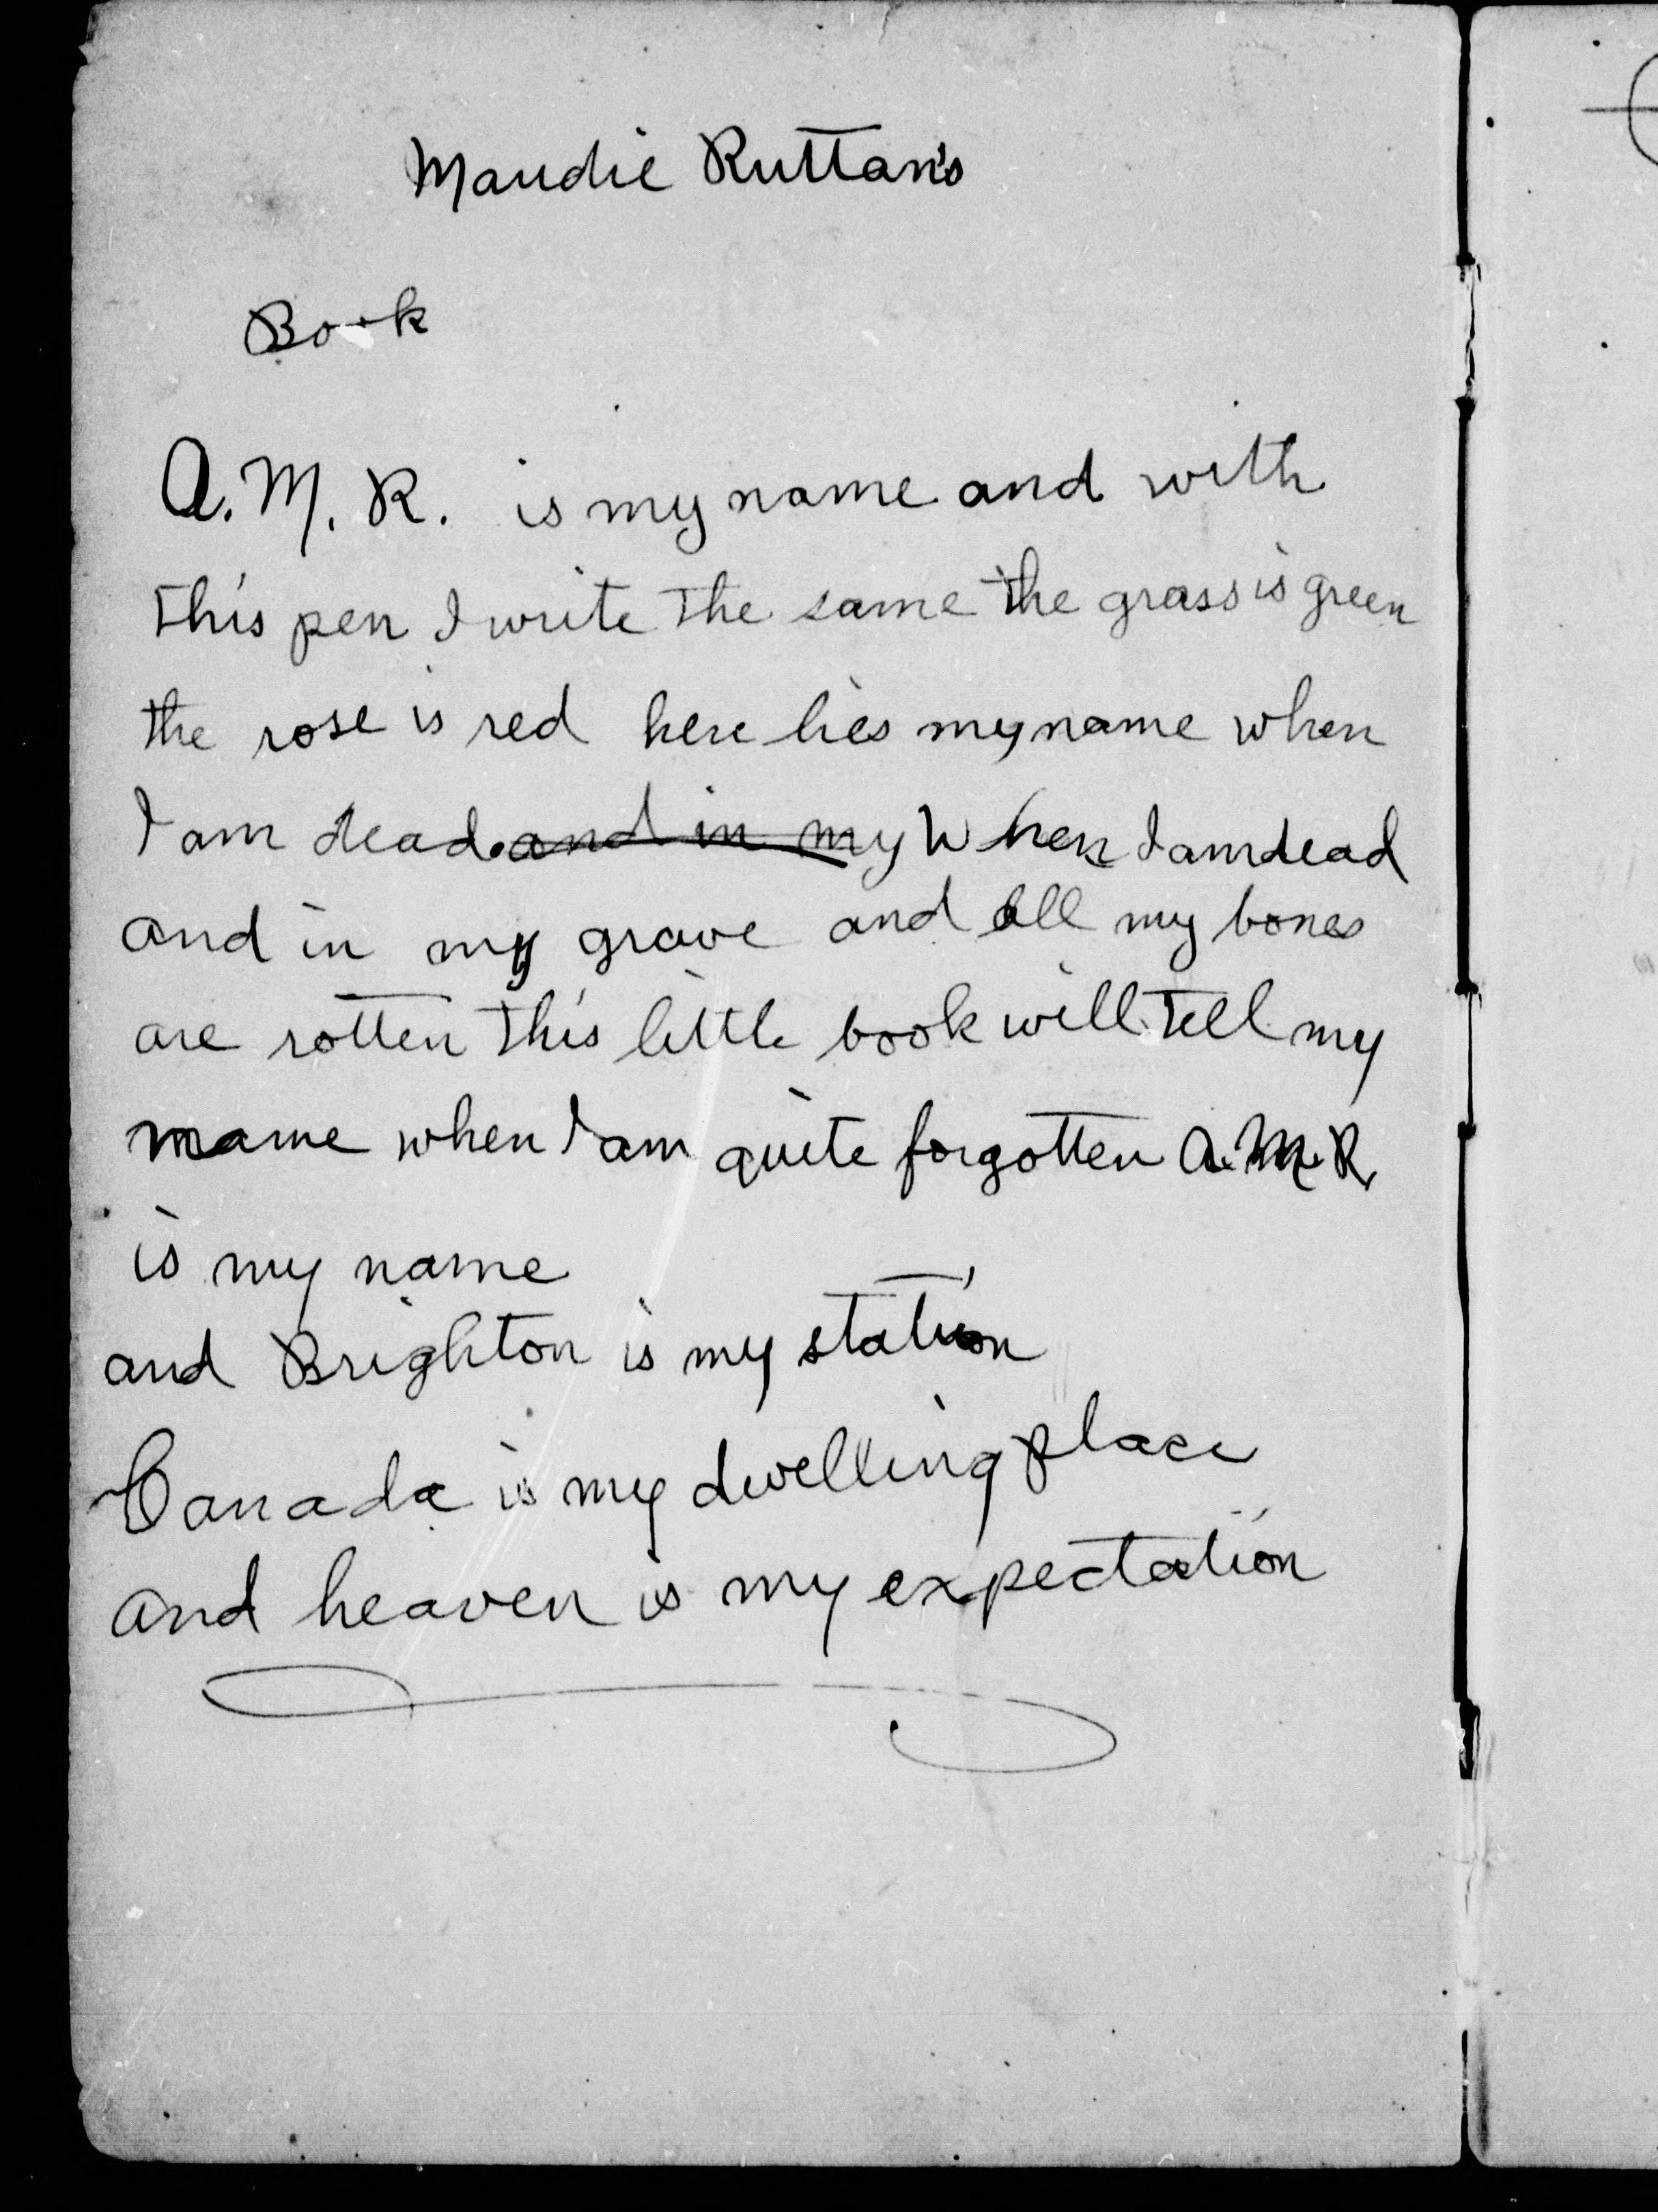 Maudie Ruttan's
Book
A. M. R. is my name and with
this pen I write the same the grass is green
the rose is red here lies my name when
I am dead. and in my When I am dead
and in my grave and all my bones
are rotten this little book will tell my
name when I am quite forgotten A. M. R.
is my name
and Brighton is my station
Canada is my dwelling place
and heaven is my expectation